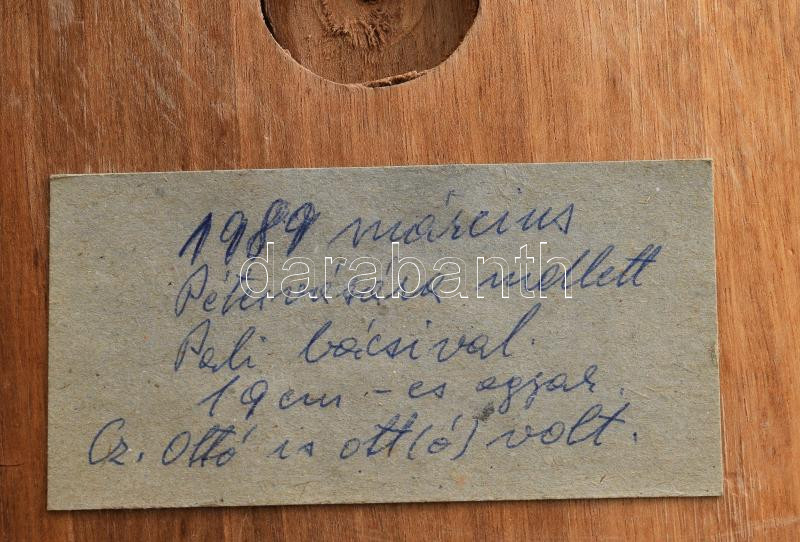 1989 március
Pétervására mellett
Pali bácsival.
19 cm-es agyar.
Cz. Ottó is ott(ó) volt.
darabanth